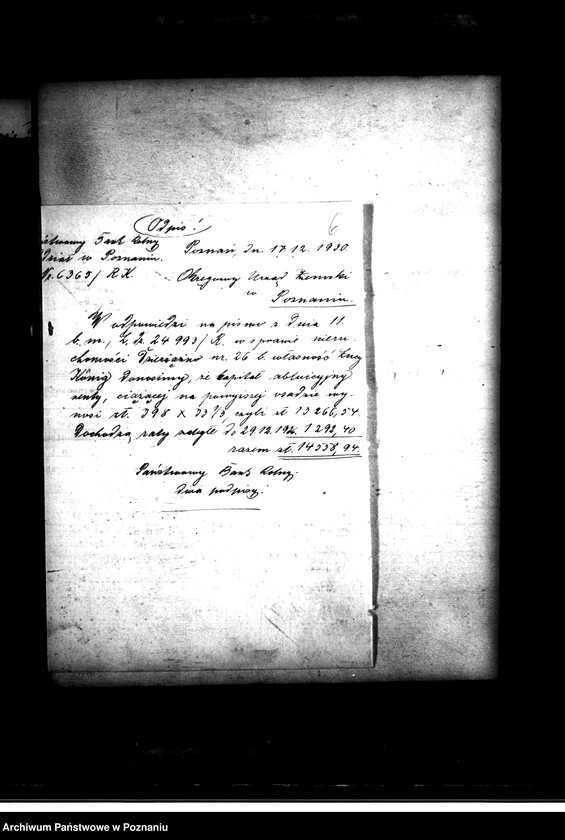 Odpis!
6
Państwowy Bank Rolny
Oddział w Poznaniu.
Nr. 6365/ R.K.
Poznań, dn. 17.12. 1930.
Okręgowy Urząd Ziemski
w
Poznaniu.
W odpowiedzi na pismo z dnia 11.
b. m., 24993/R. w sprawie nieru-
chomości nr. 26 b. własność
König donosimy, że kapitał abluicyjny
renty, ciążącej na powyższej osadzie wy-
nosi zł. 398 x 33 1/3 czyli zł 13266,54.
Dochodzą raty zaległe do 29.12. 1 292,40
razem zł. 14558,94.
Państwowy Bank Rolny.
dwa podpisy.
Archiwum Państwowe w Poznaniu